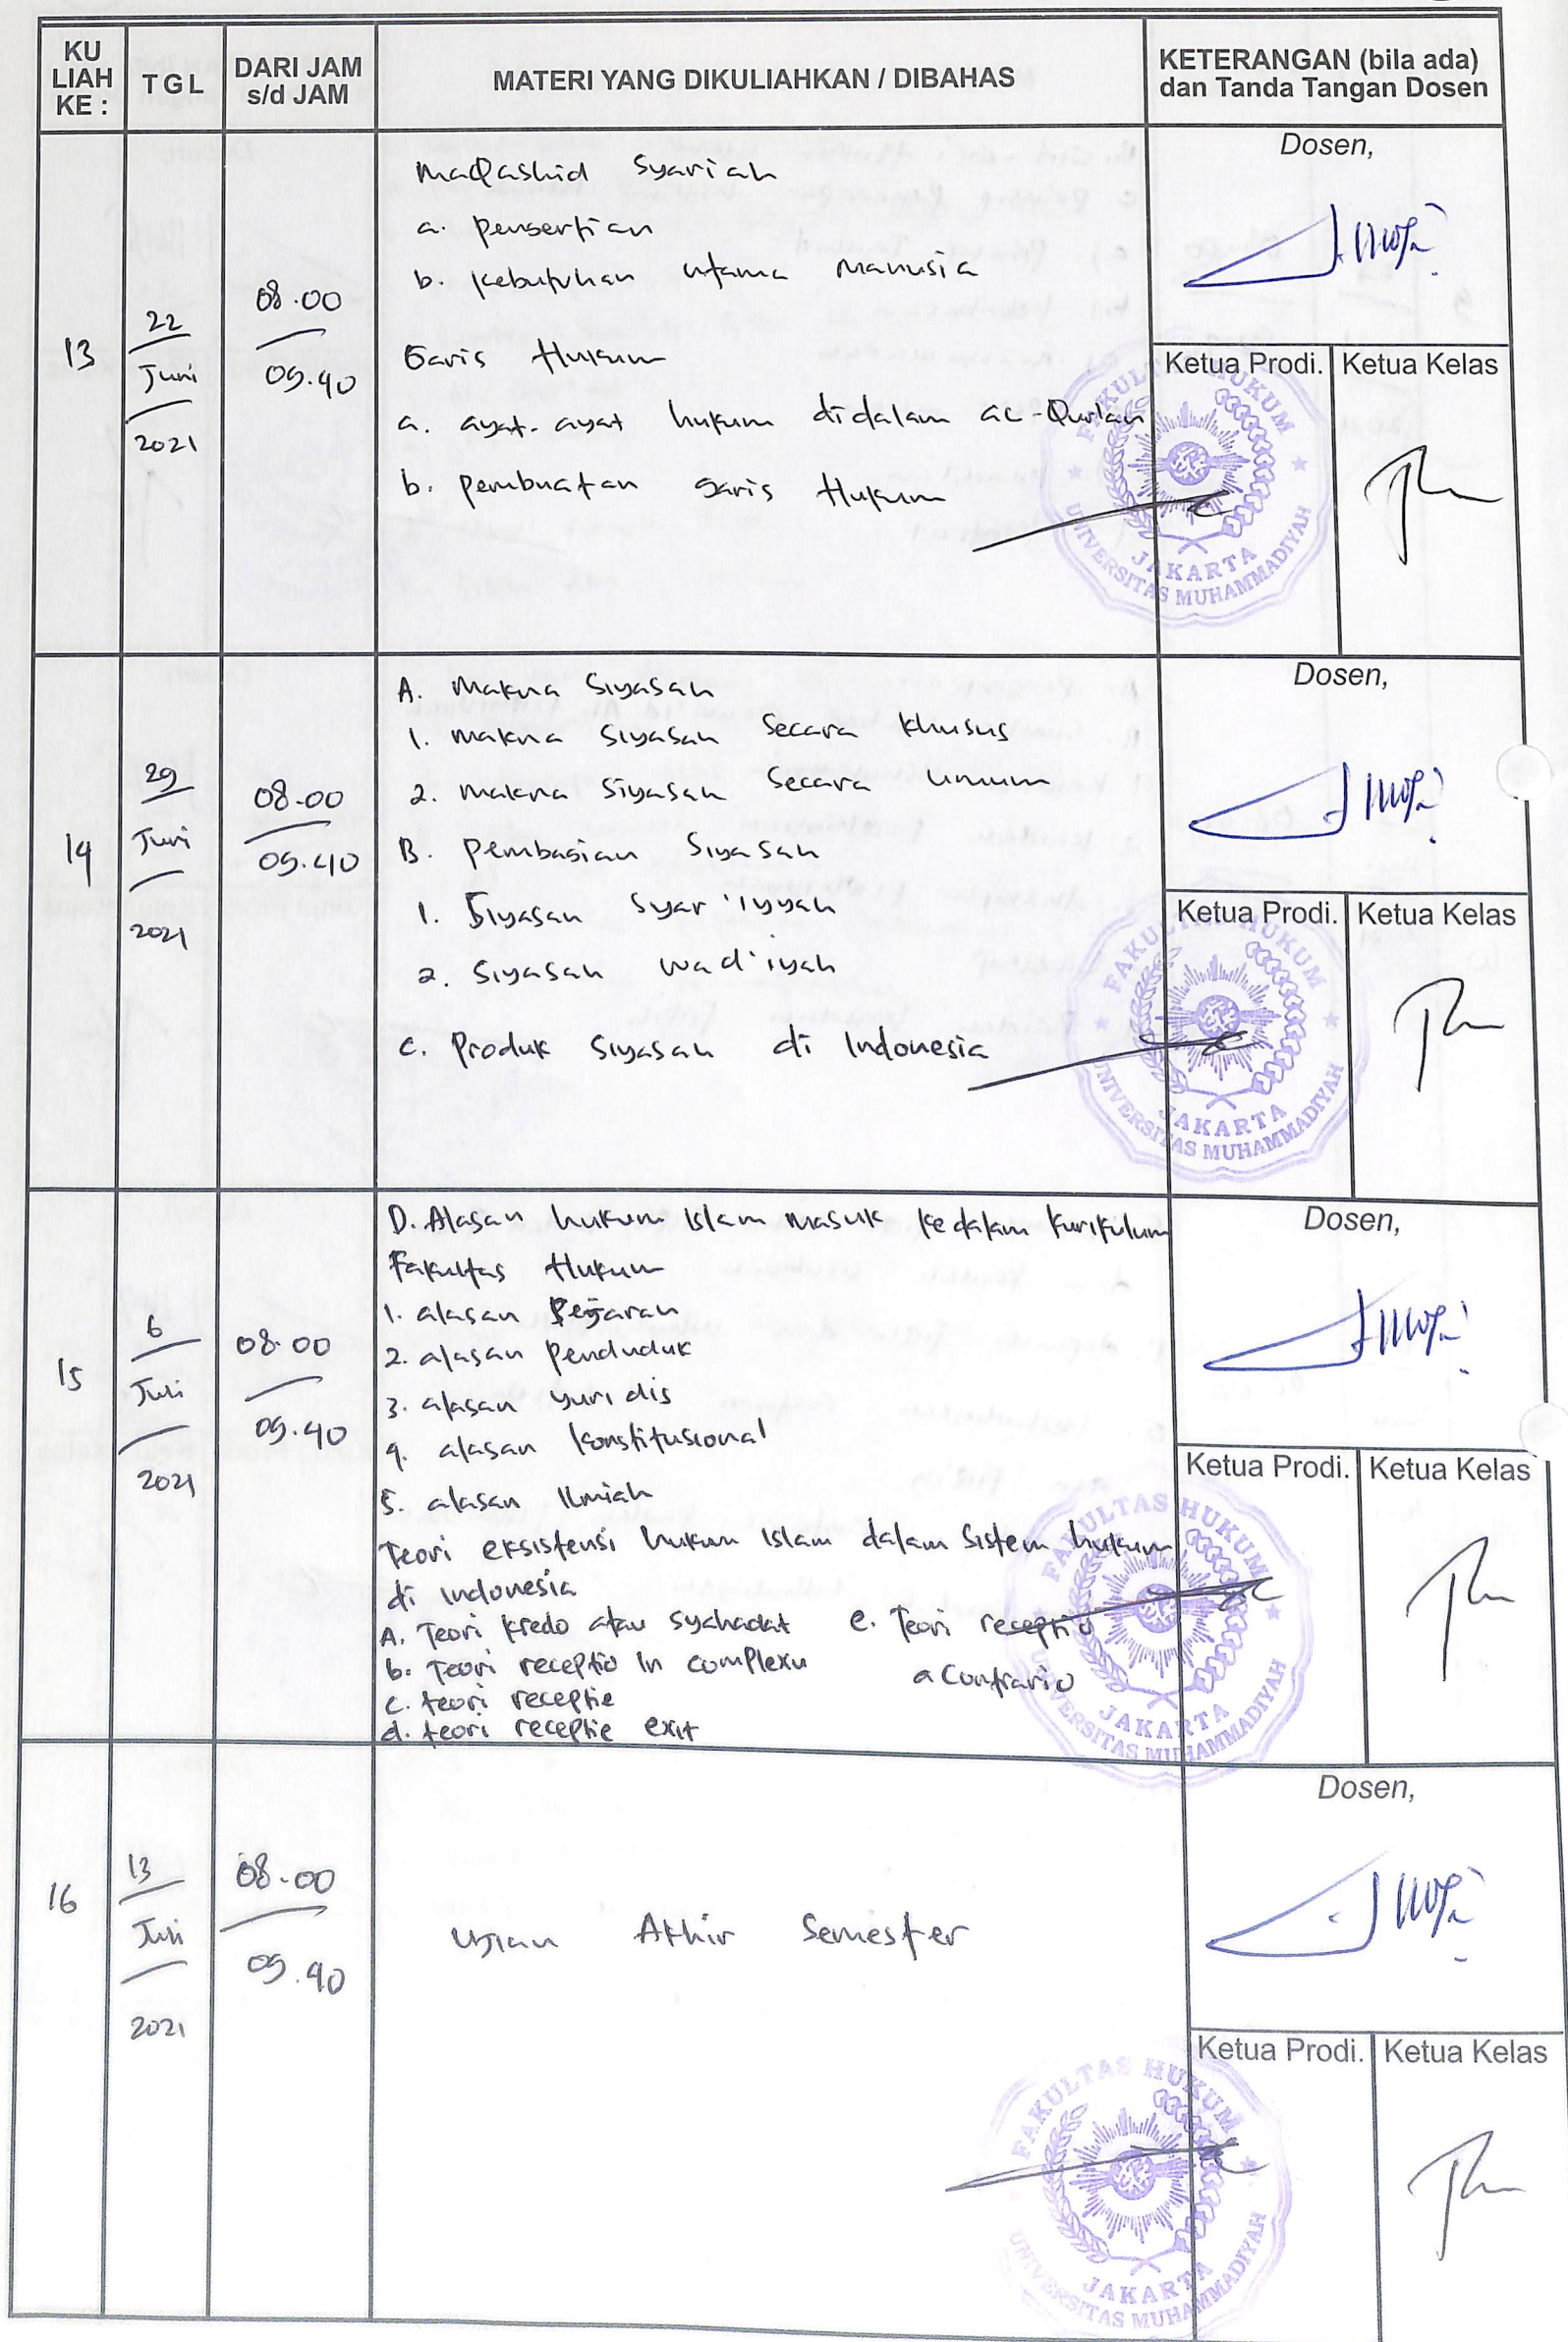 KU LIAH KE :
TGL
DARI JAM s/d JAM
MATERI YANG DIKULIAHKAN / DIBAHAS
KETERANGAN (bila ada) dan Tanda Tangan Dosen
13
22
Juni
2021
08.00
09.40
Maqashid Syariah
a. pengertian
b. kebutuhan utama manusia
Garis Hukum
a. ayat-ayat hukum didalam al-Qur'an
b. pembuatan garis Hukum
Dosen,
Ketua Prodi.
Ketua Kelas
FAKULTAS HUKUM
JAKARTA
UNIVERSITAS MUHAMMADIYAH
14
29
Juni
2021
08.00
09.40
A. Makna Siyasah
1. makna siyasah secara khusus
2. makna siyasah secara umum
B. pembagian siyasah
1. Siyasah syar'iyyah
2. Siyasah wad'iyah
C. Produk siyasah di Indonesia
Dosen,
Ketua Prodi.
Ketua Kelas
FAKULTAS HUKUM
JAKARTA
UNIVERSITAS MUHAMMADIYAH
15
6
Juli
2021
08.00
09.40
D. Alasan hukum Islam masuk kedalam kurikulum
Fakultas Hukum
1. alasan sejarah
2. alasan penduduk
3. alasan yuridis
4. alasan konstitusional
5. alasan Ilmiah
Teori eksistensi hukum Islam dalam sistem hukum
di Indonesia
A. Teori kredo atau syahadat
b. Teori receptio in complexu
c. teori receptie
d. teori receptie exit
e. Teori receptio
a Contrario
Dosen,
Ketua Prodi.
Ketua Kelas
FAKULTAS HUKUM
JAKARTA
UNIVERSITAS MUHAMMADIYAH
16
13
Juli
2021
08.00
09.40
Ujian Akhir Semester
Dosen,
Ketua Prodi.
Ketua Kelas
FAKULTAS HUKUM
JAKARTA
UNIVERSITAS MUHAMMADIYAH